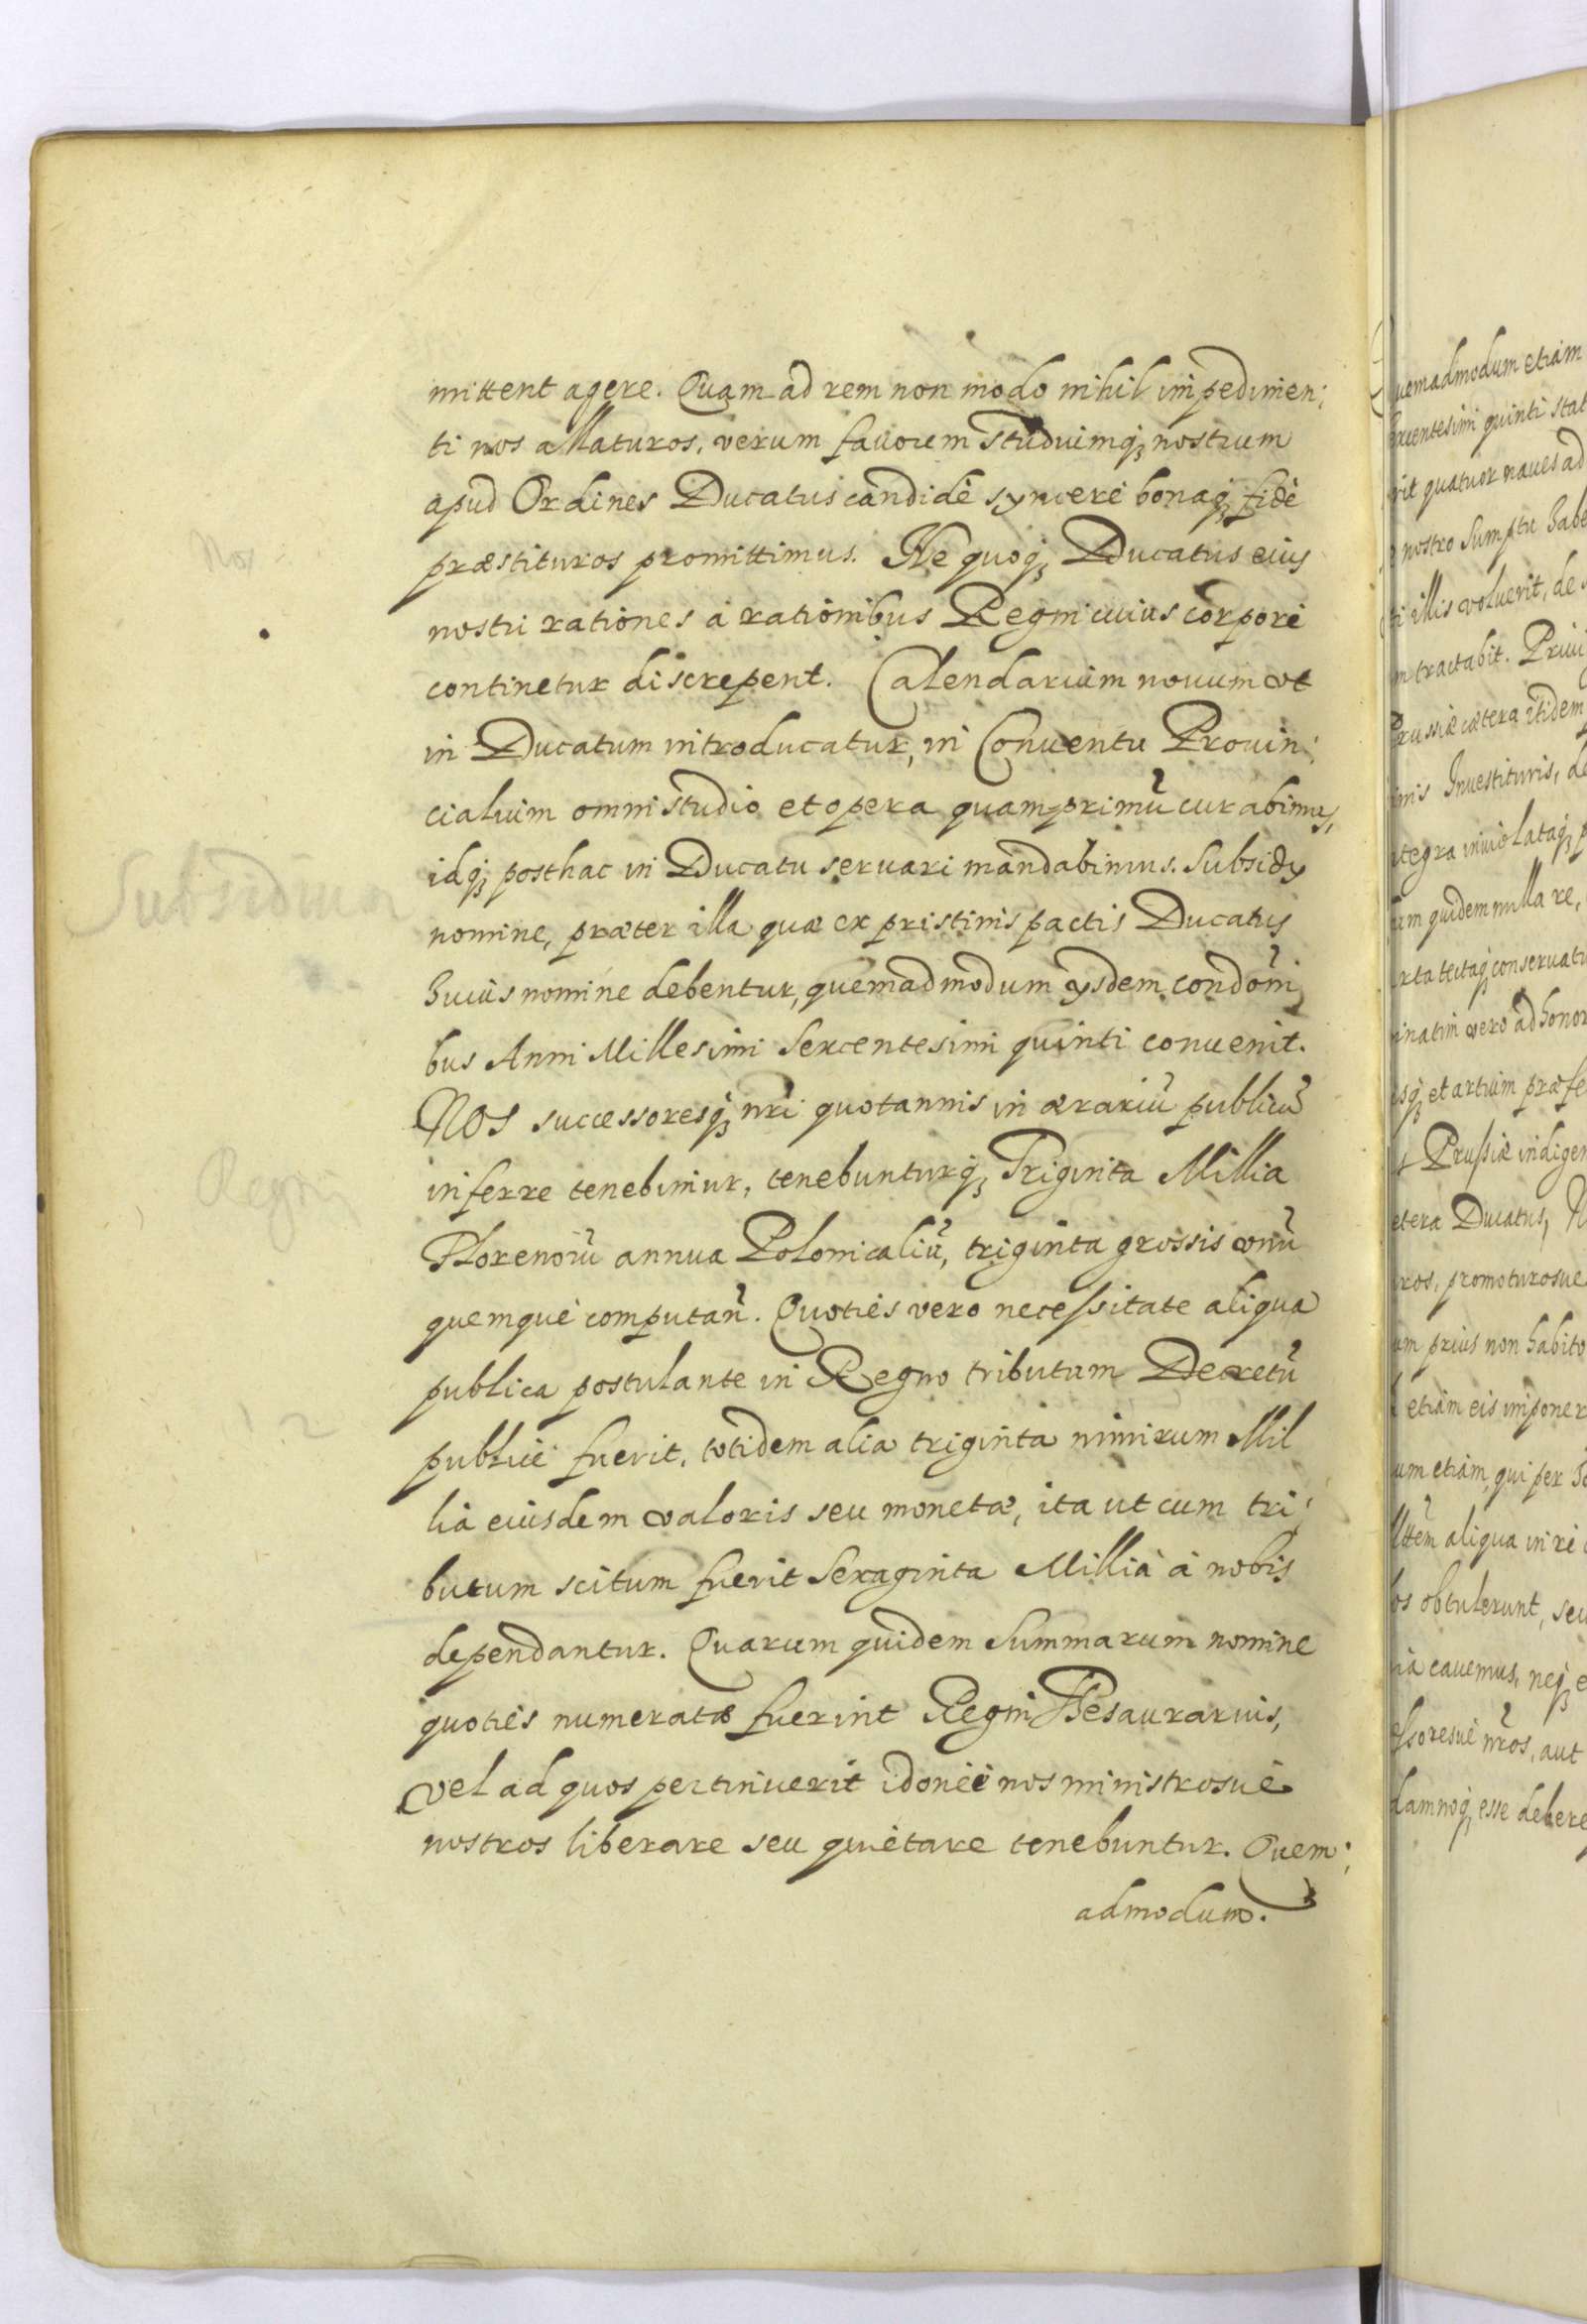 mittent agere. Quam ad rem non modo nihil impedimen:
ti nos allaturos, verum fauorem studiumq3 nostrum
apud Ordines Ducatus candidè syncerè bonaq3 fidè
præstituros promittimus. Ne quoq3 Ducatus eius
nostri rationes à rationibus Regni cuius corpori
continetur discrepent. Calendarium nouum vt
in Ducatum introducatur, in Conuentu Prouin:
cialium omni studio et opera quamprimū curabimus,
idq3 posthac in Ducatu seruari mandabimus. Subsidy
nomine, præter illa quæ ex pristinis pactis Ducatus
huius nomine debentur, quemadmodum ysdem condōni
bus Anni Millesimi Sexcentesimi quinti conuenit.
NOS successoresq3 nrī quotannis in ærariū publicū
inferre tenebimur, tenebunturq3 Triginta Millia
Florenorū annua Polonicaliū, triginta grossis vnū
quemque computan̄. Quoties vero necessitate aliqua
publica postulante in Regno tributum Decretū
publicè fuerit, totidem alia triginta nimirum Mil
lia eiusdem valoris seu monetæ, ita ut cum tri:
butum scitum fuerit Sexaginta Millia à nobis
dependantur. Quarum quidem Summarum nomine
quoties numeratæ fuerint Regni Thesaurarius,
vel ad quos pertinuerit idoneè nos ministrosue
nostros liberare seu quietare tenebuntur. Quem:
admodum.
Nos
Subsidium
Regni
12
uemadmodum etiam
excentesimi quinti stat
rit quatuor naues ad
nostro Sumptu habe
illis voluerit, de
tractabit. Priui
Prussiæ cætera itidem
Inuestituris, de
tegra inuiolataq3 p
quidem nulla re,
rta tectaq3 conseruatu
inatim vero ad honor
q3 et artium præfe
Prussiæ indigen
etera Ducatus, N
ros, promoturosue
um prius non habito
etiam eis imponer
um etiam, qui per
aliqua in re
os obtulerunt, seu
ia cauemus, neq3 e
ssoresue nr̄os, aut
damnoq3 esse debere